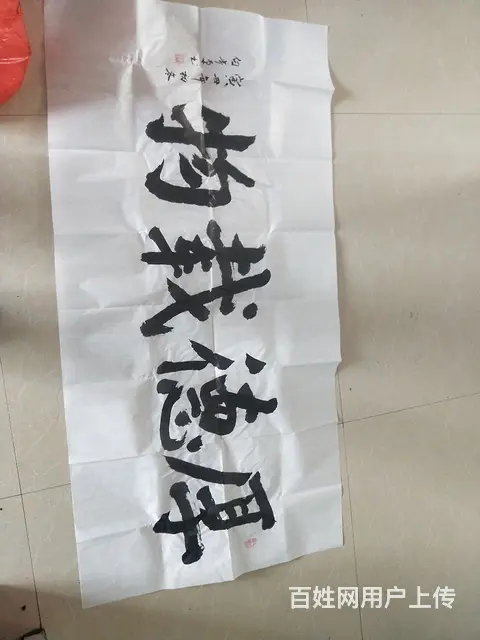 厚德載物
百姓网用户上传